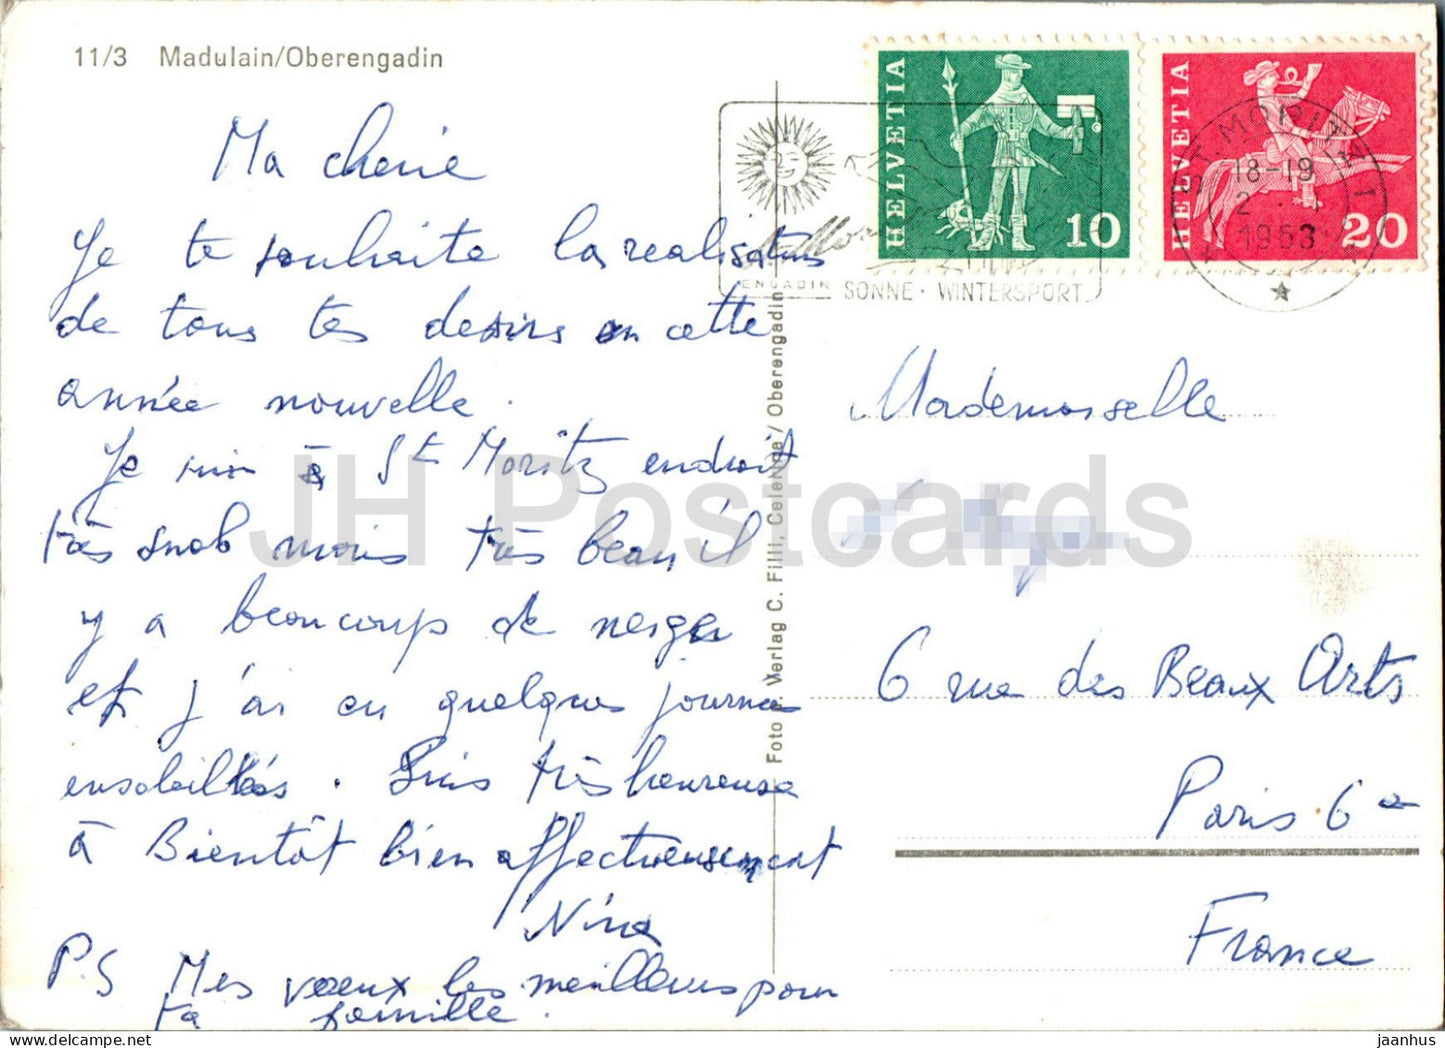 11/3 Madulain/Oberengadin
Ma cherie
Je te souhaite la realisation
de tous tes desirs en cette
année nouvelle.
Je suis à St Moritz endroit
très snob mais très beau il
y a beaucoup de neige
et j'ai eu quelques journées
ensoleillés. Suis très heureuse
à Bientôt bien affectueusement
Nina
P.S Mes voeux les meilleurs pour
ta famille.
Foto u. Verlag C. Filli, Celerina / Oberengadin
ENGADIN SONNE · WINTERSPORT
HELVETIA
10
HELVETIA
20
ST. MORITZ 1
18-19
1963
Mademoiselle
6 rue des Beaux Arts
Paris 6e
France
JH Postcards
jaanhus @ delcampe.net